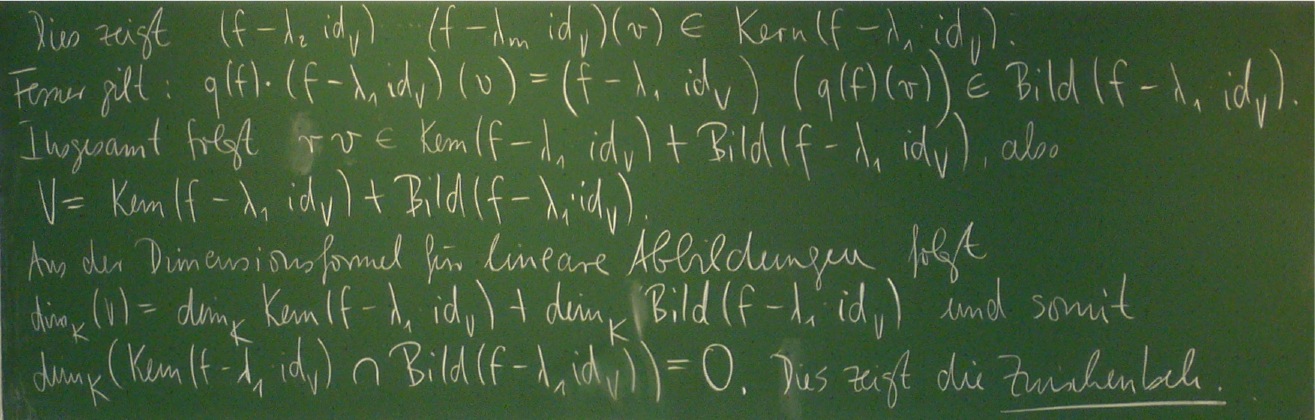 Dies zeigt (f-λ₂ id_V) (f-λ_m id_V)(v) ∈ Kern(f-λ₁ id_V).
Ferner gilt: q(f)·(f-λ₁ id_V)(v) = (f-λ₁ id_V) (q(f)(v)) ∈ Bild(f-λ₁ id_V).
Insgesamt folgt r v ∈ Kern(f-λ₁ id_V) + Bild(f-λ₁ id_V), also
V = Kern(f-λ₁ id_V) + Bild(f-λ₁·id_V).
Aus der Dimensionsformel für lineare Abbildungen folgt
dim_K(V) = dim_K Kern(f-λ₁ id_V) + dim_K Bild(f-λ₁ id_V) und somit
dim_K(Kern(f-λ₁ id_V) ∩ Bild(f-λ₁ id_V)) = 0. Dies zeigt die Zwischenbeh.